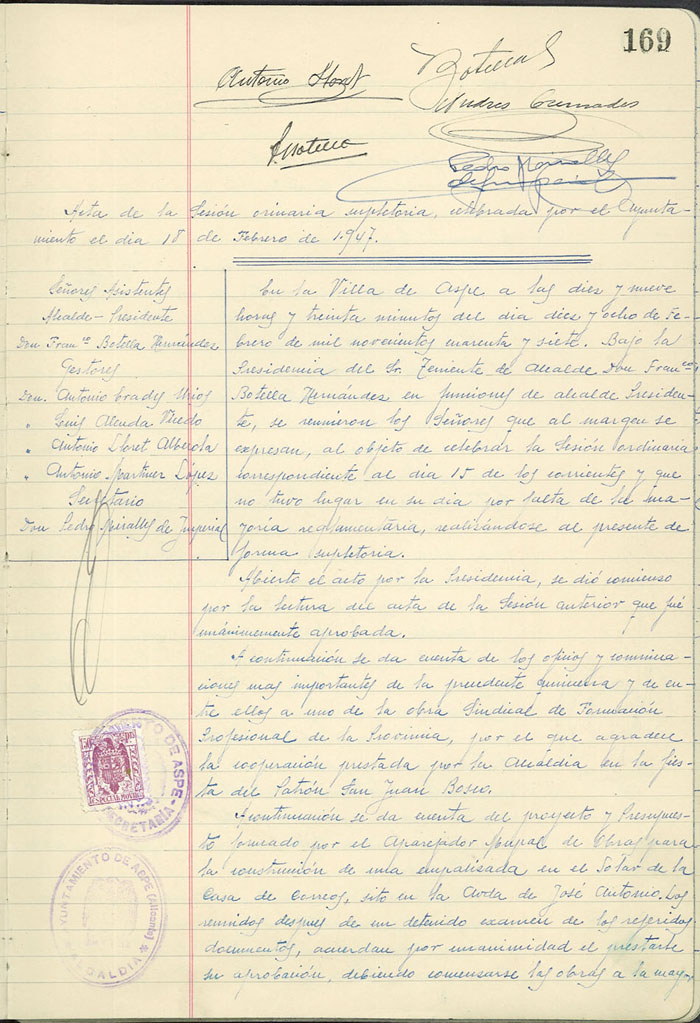 169
Antonio Lloret
Botella
Andres Cremades
A Botella
Pedro Miralles
Acta de la Sesión orinaria supletoria, celebrada por el Ayunta-
miento el dia 18 de Febrero de 1.947.
Señores Asistentes
Alcalde-Presidente
Don Fran.co Botella Hernández
Gestores
Don. Antonio Erades Urios
" Luis Alenda
" Antonio Lloret Alberola
" Antonio Martinez López
Secretario
Don Pedro Miralles de Imperial
En la Villa de Aspe a las diez y nueve
horas y treinta minutos del dia diez y ocho de Fe-
brero de mil novecientos cuarenta y siete. Bajo la
Presidencia del Sr. Teniente de Alcalde Don Fran.co
Botella Hernández en funciones de alcalde Presiden-
te, se reunieron los Señores que al margen se
expresan, al objeto de celebrar la Sesión ordinaria
correspondiente al dia 15 de los corrientes y que
no tuvo lugar en su dia por falta de la ma-
yoria reglamentaria, realizándose al presente de
forma supletoria.
Abierto el acto por la Presidencia, se dió comienso
por la lectura del acta de la Sesión anterior que fué
unánimemente aprobada.
A continuación se da cuenta de los oficios y comunica-
ciones mas importantes de la precedente quincena y de en-
tre ellos a uno de la obra Sindical de Formación
Profesional de la Provincia, por el que agradece
la cooperación prestada por la Alcaldia en la fies-
ta del Patrón San Juan Bosco.
A continuación se da cuenta del proyecto y Presupues-
to formado por el Aparejador Mnpal de Obras para
la construcción de una empalisada en el Solar de la
Casa de Correos, sito en la Avda de José Antonio. Los
reunidos despues de un detenido examen de los referidos
documentos, acuerdan por unanimidad el prestarle
su aprobación, debiendo comensarse las obras a la mayor
AYUNTAMIENTO DE ASPE
SECRETARIA
ESPECIAL MOVIL
AYUNTAMIENTO DE ASPE (Alicante)
ALCALDIA